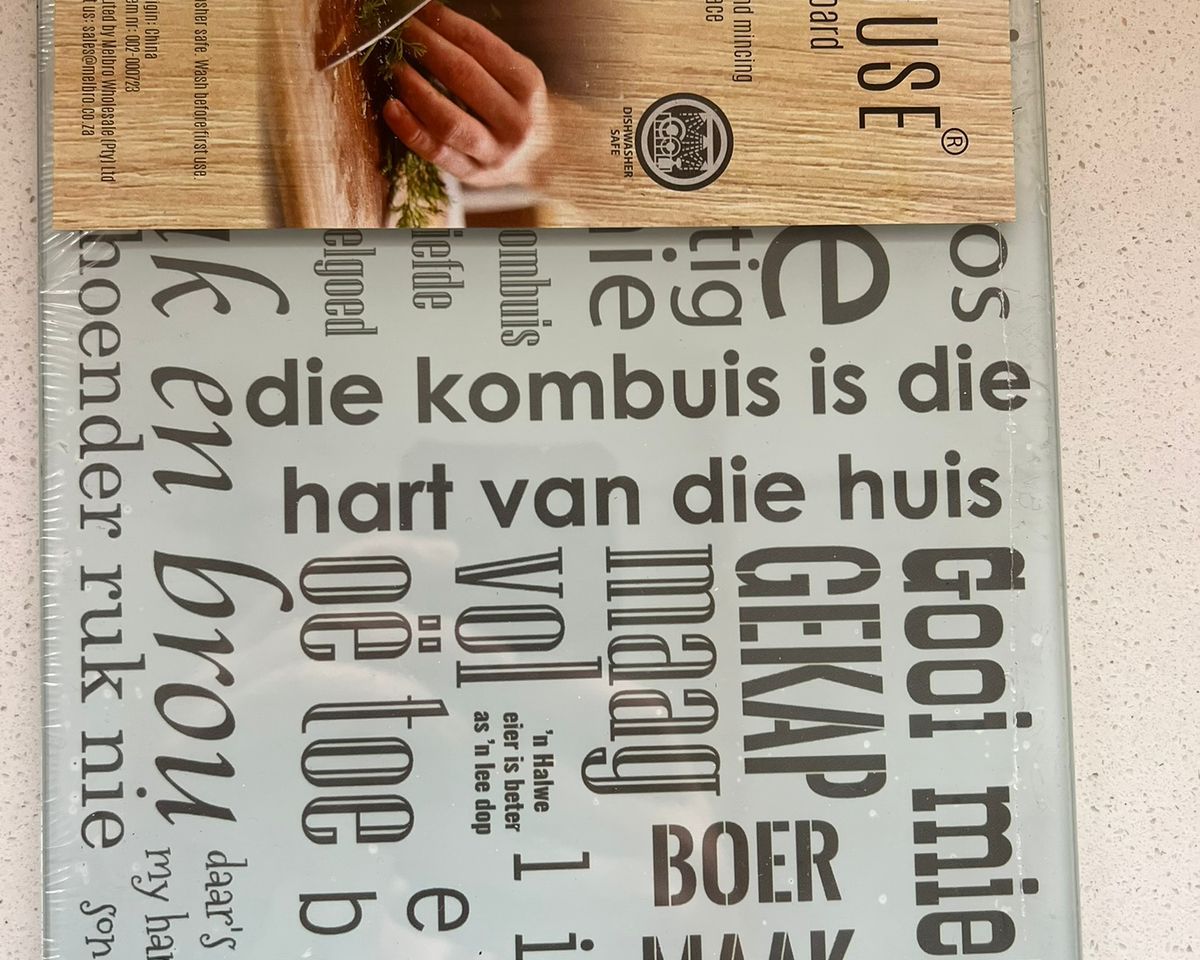 USE®
oard
nd mincing
ace
DISHWASHER
SAFE
asher safe. Wash before first use.
igin: China
em nr: 002-000723
uted by Melbro Wholesale (Pty) Ltd
t us: sales@melbro.co.za
os
e
tig
nie
ombuis
iefde
elgoed
k en brou
hoender ruk nie
die kombuis is die
hart van die huis
Gooi mie
GEKAP
maag
vol
oë toe
'n Halwe
eier is beter
as 'n lee dop
BOER
MAAK
l i
e
b
daar's
my har
son